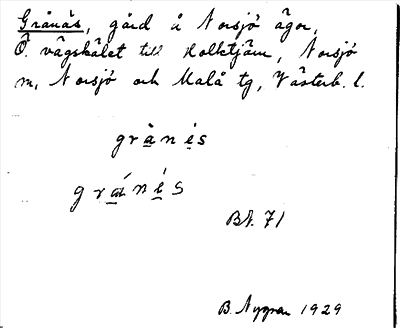 Grånäs, gård å Norsjö ägor,
Ö. vägskälet till Kolktjärn, Norsjö
m, Norsjö och Malå tg, Västerb. l.
grånés
gránés
Bl. 71
B. Nygren 1929